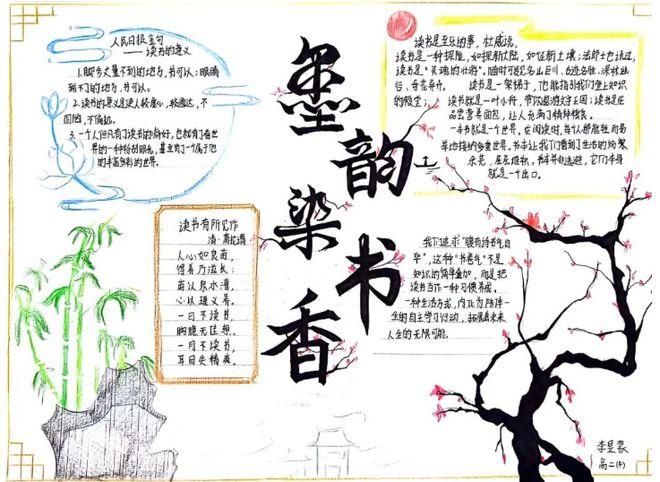 墨韵
染书香
人民日报金句
——读书的意义
1.脚步丈量不到的地方,书可以;眼睛
到不了的地方,书可以。
2.读书的意义是使人较虚心,较通达,不
固陋,不偏执。
3.一个人但凡有了读书的癖好,也就有了看世
界的一种特别眼光,甚至有了一个属于他
的丰富多彩的世界。
读书有所见作
清·萧抡谓
人心如良苗,
得养乃滋长;
苗以泉水灌,
心以理义养。
一日不读书,
胸臆无佳想。
一月不读书,
耳目失精爽。
读书是至乐的事,杜威说,
读书是一种探险,如探新大陆,如征新土壤;法郎士也说过,
读书是"灵魂的壮游",随时可发见名山巨川、古迹名胜、深林幽
谷、奇花异卉。
读书是一架梯子,它能指引我们登上知识
的殿堂;读书就是一叶小舟,带你遨游文学王国;读书是在
品尝营养面包,让人充满了精神粮食。
一本书就是一个世界,在阅读时,每个人都能轻而易
举地接纳多重世界。书本让我们看到了生活的纷繁
杂芜,层层堆积。书本并非逃避,它们本身
就是一个出口。
我们追求"腹有诗书气自
华",这种"书卷气"不是
知识的简单叠加,而是把
读书当作一种习惯养成,
一种生活方式,内化为陪伴一
生的自主学习行动,拓展着未来
人生的无限可能。
高二